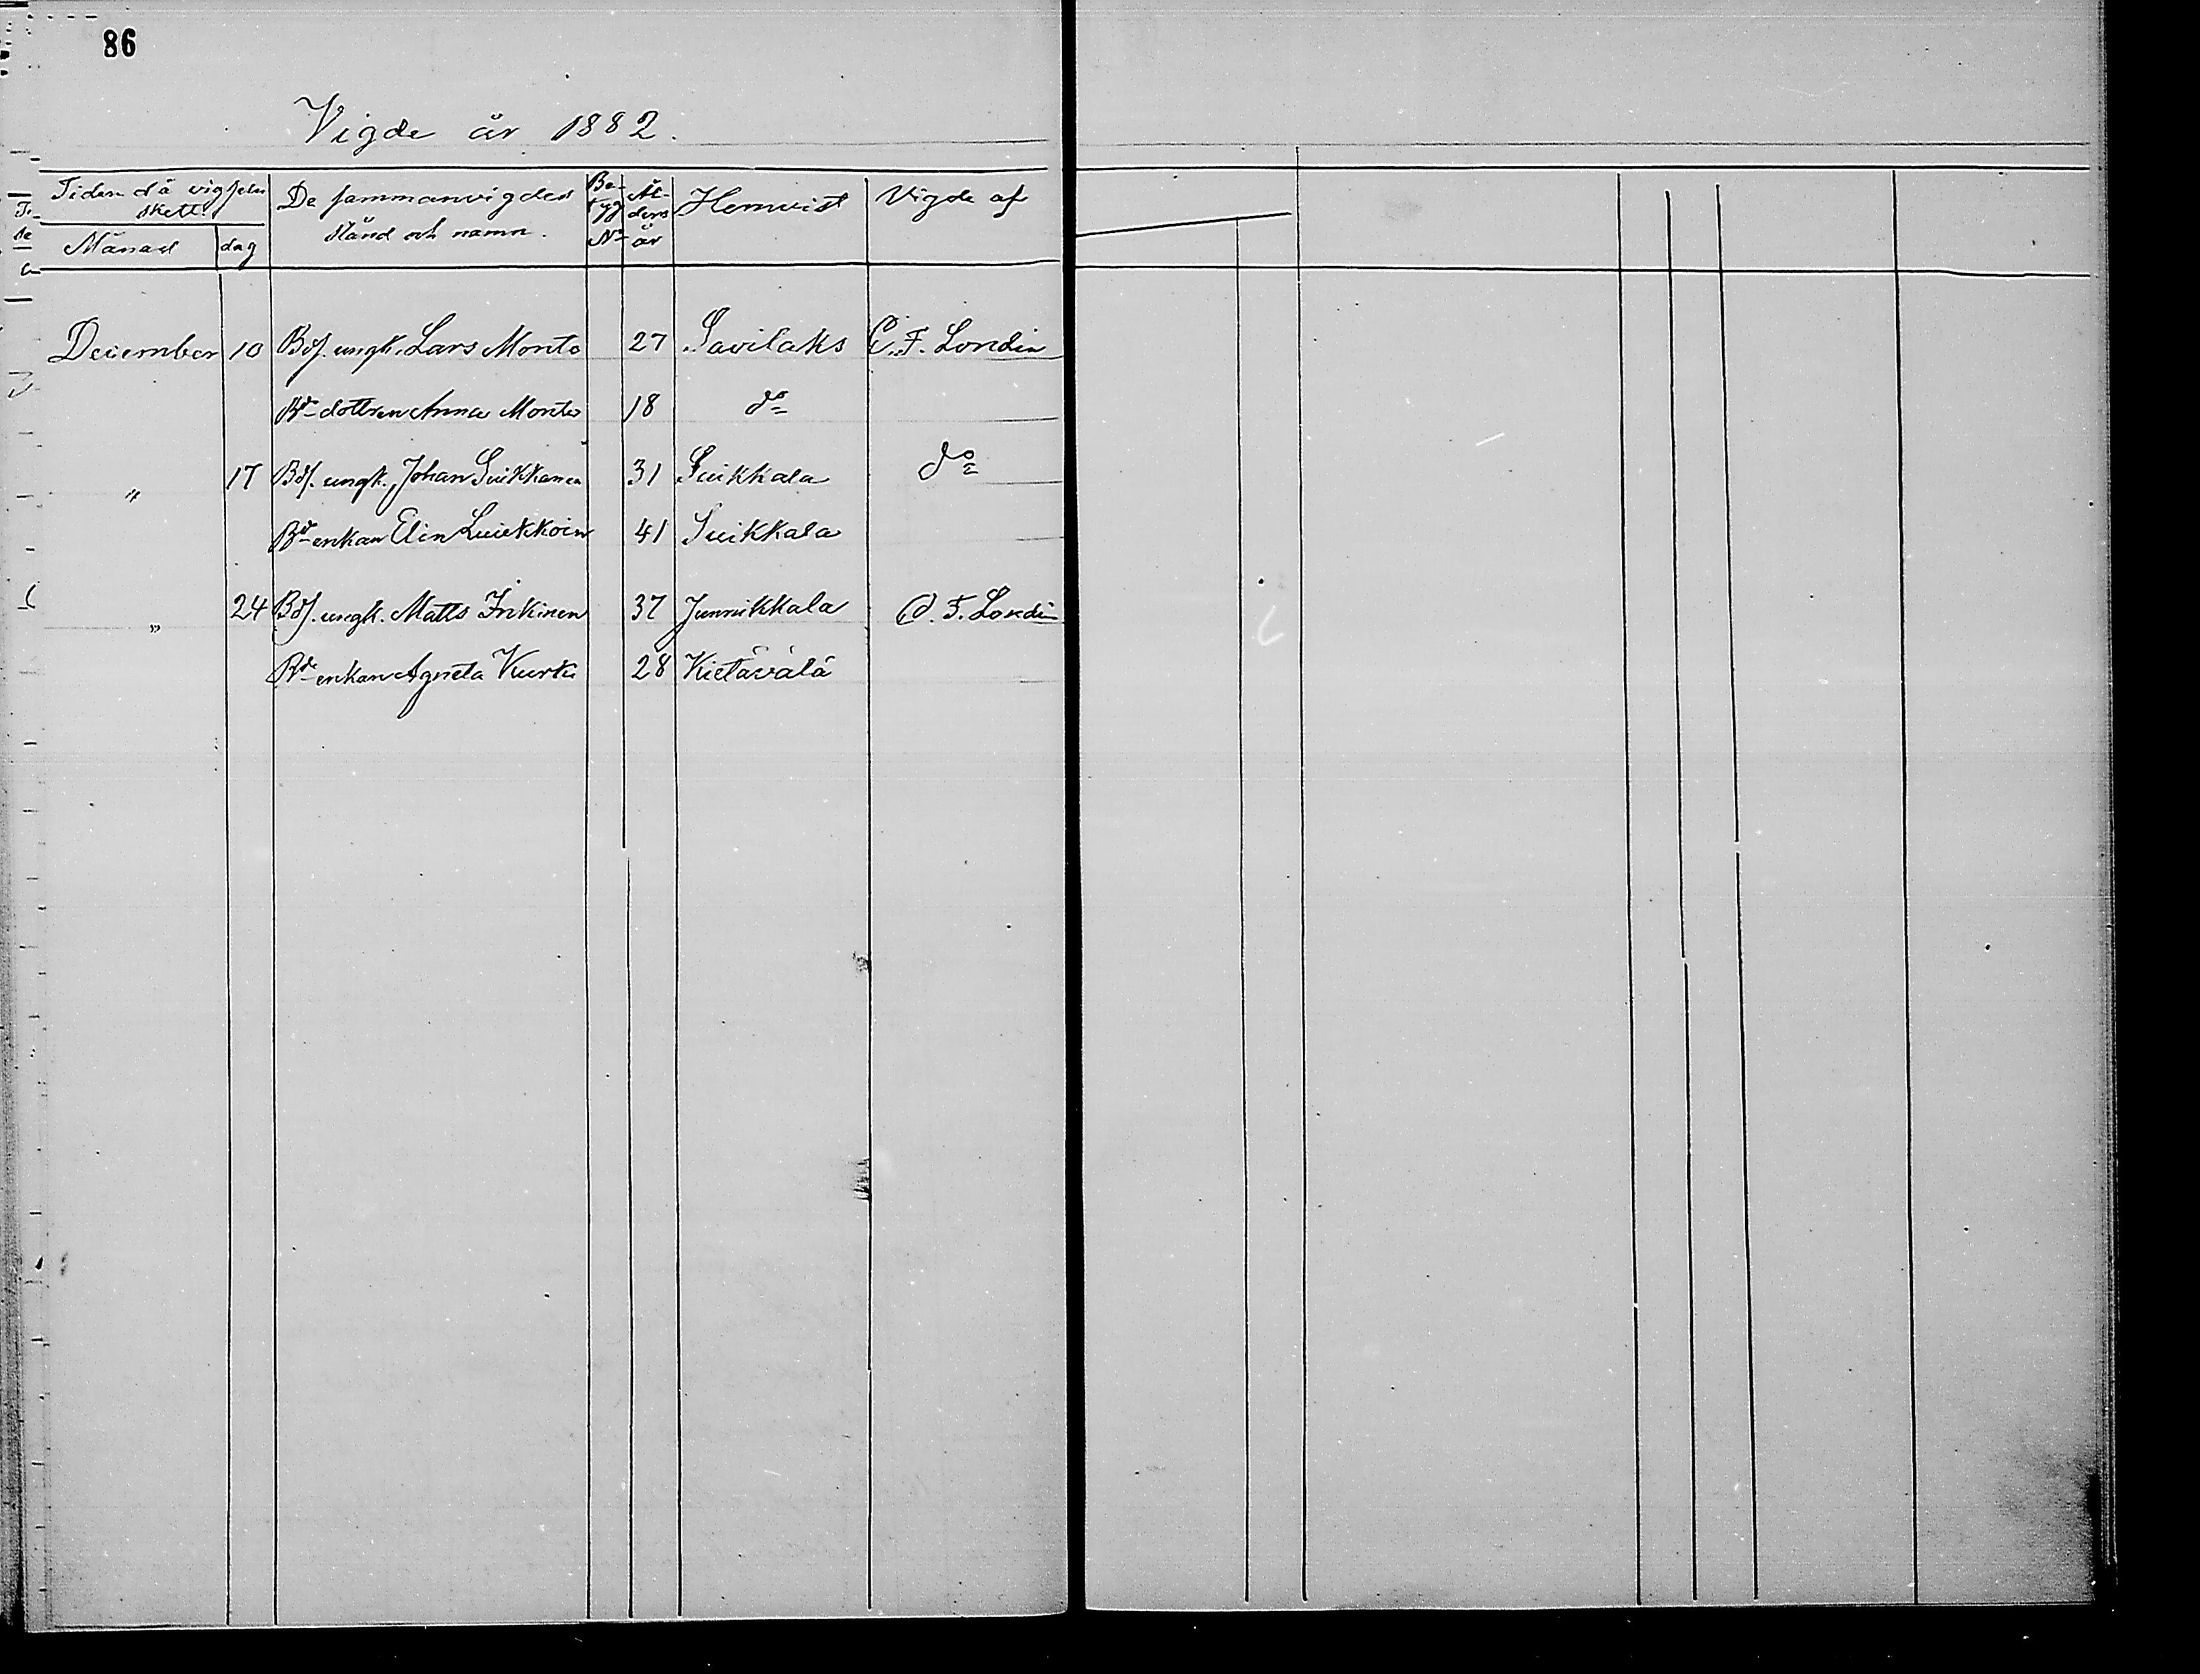 86
Vigde år 1882.
Tiden då vigseln skett.
De sammanvigdes stånd och namn.
Be-tyg No
Ål-ders år
Hemvist
Vigde af
Månad dag
December 10 Bds. ungk. Lars Monto 27 Savilaks C. F. Londin
Bde dottren Anna Monto 18 do
" 17 Bds. ungk. Johan Suikkanen 31 Suikkala do
Bde enkan Elin 41 Suikkala
" 24 Bds. ungk. Matts Inkinen 37 Junnikkala C. F. Londin
Bde enkan Agneta Kurki 28 Kietävälä